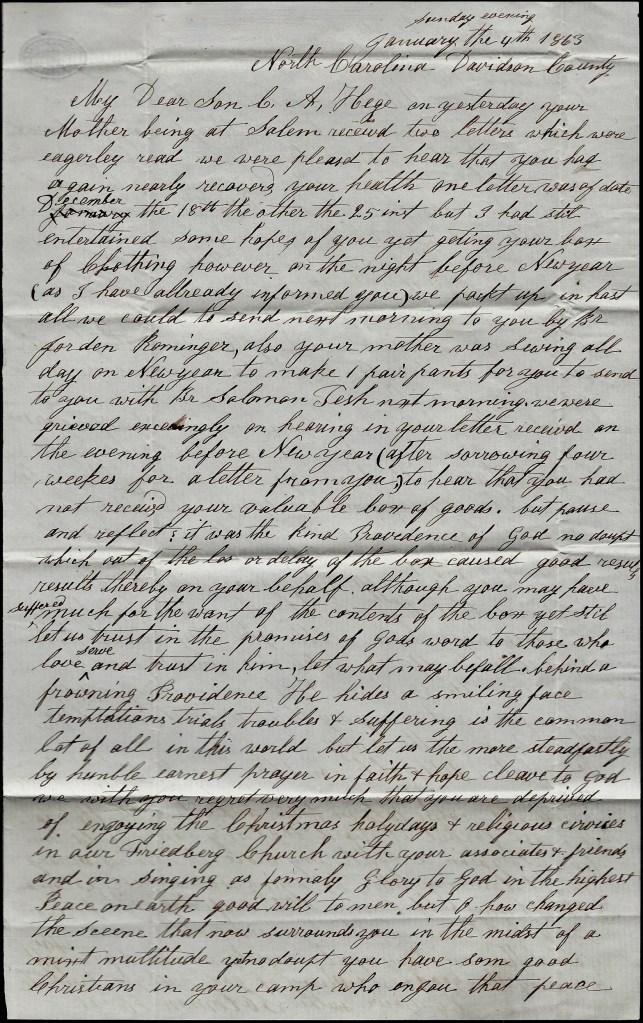 Sunday evening
January the 4th 1863
North Carolina Davidson County
My Dear Son C. A, Hege on yesterday your
Mother being at Salem receivd two letters which were
eagerley read we were pleasd to hear that you had
again nearly recoverd your health one letter was of date
December
January the 18th the other the 25 inst but I had stil
entertained some hopes of you yet geting your box
of Clothing however on the night before Newyear
(as I have allready informed you) we packt up in hast
all we could to send next morning to you by Br
Jorden Rominger, also your mother was Swing all
day on Newyear to make 1 pair pants for you to send
to you with Br Saloman Tesh next morning. we were
grieved exceedingly on hearing in your letter receivd on
the evening before New Year (after sorrowing four
weekes for a letter from you,) to hear that you had
not receivd your valuable box of goods. but pause
and reflect; it was the kind Providence of God no doubt
which out of the los or delay of the box caused good result
results thereby on your behalf. although you may have
suffered
much for the want of the contents of the box yet stil
let us trust in the promises of Gods word to those who
serve
love and trust in him, let what may befall. behind a
frowning Providence He hides a smiling face
temptations trials troubles & suffering is the common
lot of all in this world but let us the more steadfastly
by humble earnest prayer in faith & hope cleave to God
we with you regret very much that you are deprived
of engoying the Christmas holydays & religious civices
in our Friedberg Church with your associates & friends
and in singing as formaly Glory to God in the highest
Peace on earth good will to men. but O how changed
the sceene that now surrounds you in the midst of a
mixt multitude yet no doupt you have som good
Christians in your camp who engou that peace